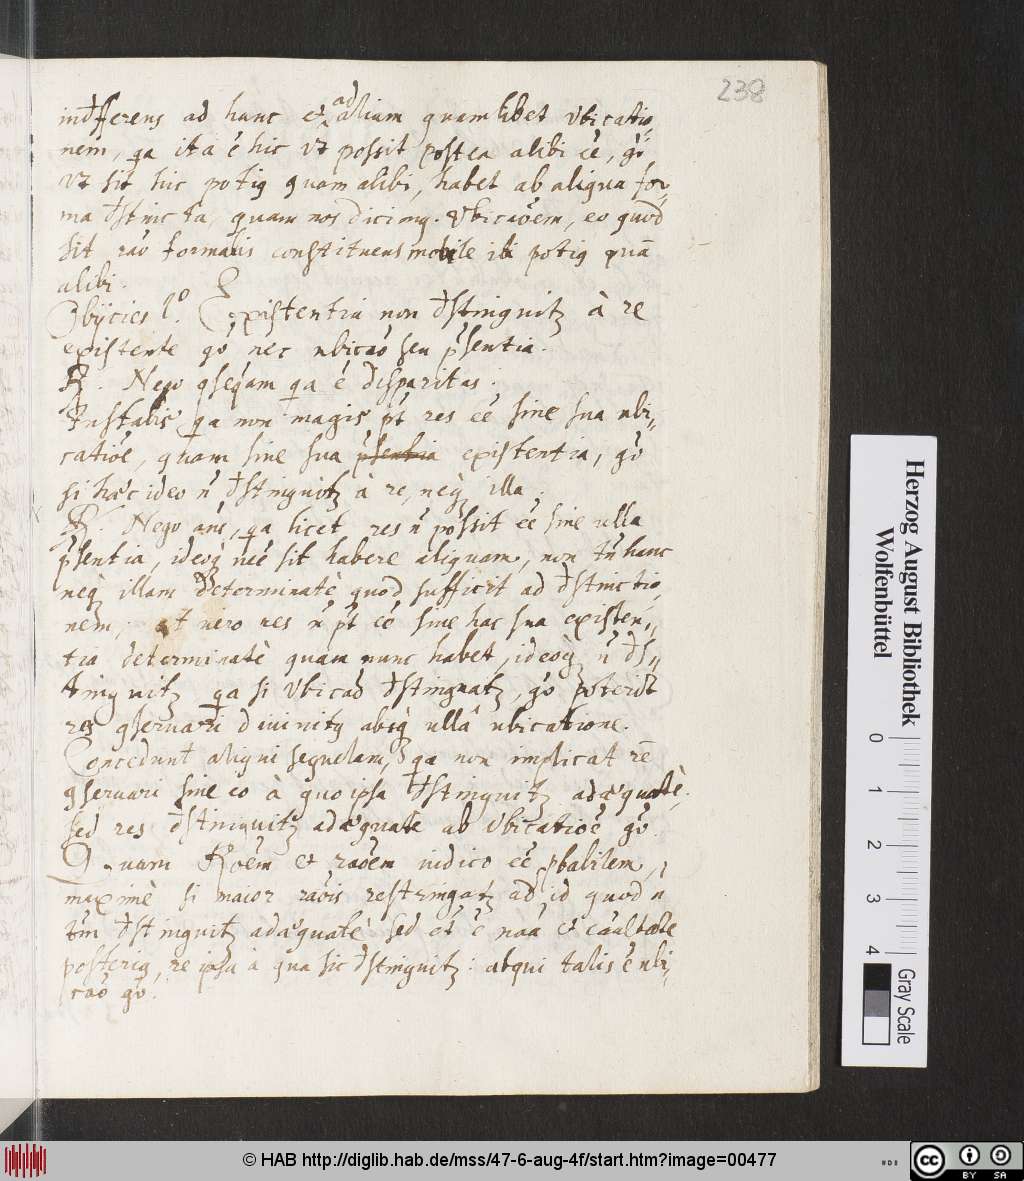 238
indifferens ad hunc et ad alium quamlibet Vbicatio„
nem, qa ita ē hic vt possit postea alibi eē, gō
vt sit hic potiq quam alibi, habet ab aliqua for„
ma dstincta, quam nos dicimq. Vbicaōem, eo quod
sit raō formalis constituens mobile ibi potiq quā
alibi.
Obijcies 1º. Existentia non dstinguitz à re
existente gō nec ubicaō seu pʼsentia.
R. Nego qseqam qa ē disparitas.
Instabis qa non magis pt res eē sine sua ubi„
catiōe, quam sine sua existentia, gō
si haec ideo n̄ dstinguitz à re, neqz illa.
R. Nego ans, qa licet res n̄ possit eē sine ulla
pʼsentia, ideoqz neē sit habere aliquam, non tn̄ hanc
neqz illam determinatè quod sufficit ad dstinctio„
nem, at uero res n̄ pt eē sine hac sua existen„
tia determinatè quam nunc habet, ideoqz n̄ ds„
tinguitz qa si Vbicaō dstinguatz, gō poterit
res qseruari diuinitq absqz ullâ ubicatione.
Concedunt aliqui sequelam, qa non implicat rē
qseruari sine eo à quo ipsa dstinguitz adæquatè.
sed res dstinguitz adæquate ab Vbicatioē gō.
Quam Roēm et raōem iudico eē pbabilem,
maximè si maior raōis restringatz ad id quod n
tm̄ dstinguitz adæquatè sed et ē naā et cāultate
posteriq, re ipsa à qua sic dstinguitz: atqui talis ē ubi„
caō gō.
Herzog August Bibliothek
Wolfenbüttel
0 1 2 3 4
Gray Scale
© HAB http://diglib.hab.de/mss/47-6-aug-4f/start.htm?image=00477
cc BY SA